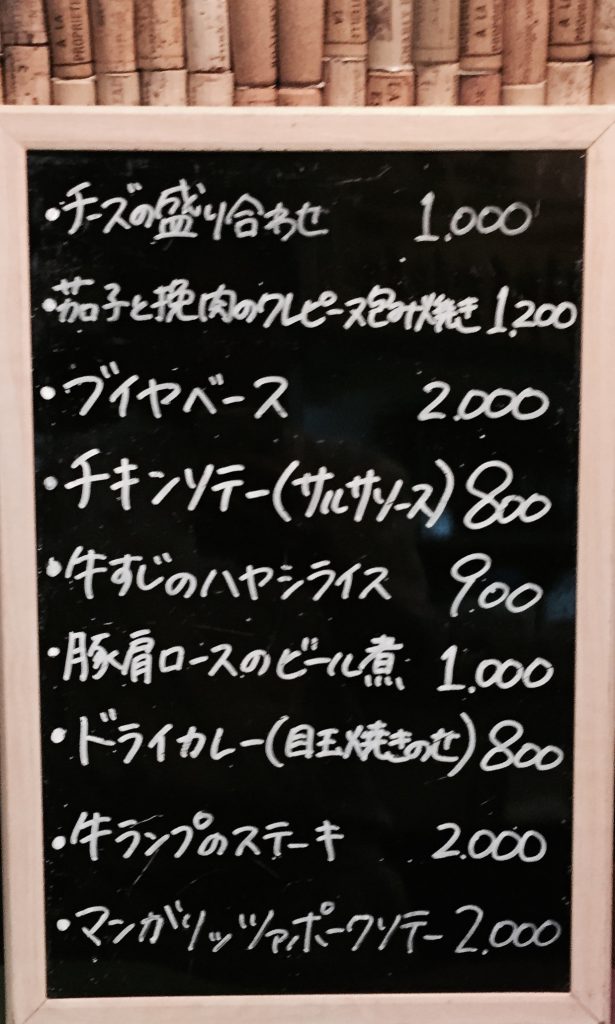 A LA
PROPRIETE
・チーズの盛り合わせ 1,000
・茄子と挽肉のクレピーヌ包み焼き 1,200
・ブイヤベース 2,000
・チキンソテー(サルサソース) 800
・牛すじのハヤシライス 900
・豚肩ロースのビール煮 1,000
・ドライカレー(目玉焼きのせ) 800
・牛ランプのステーキ 2,000
・マンガリッツァポークソテー 2,000